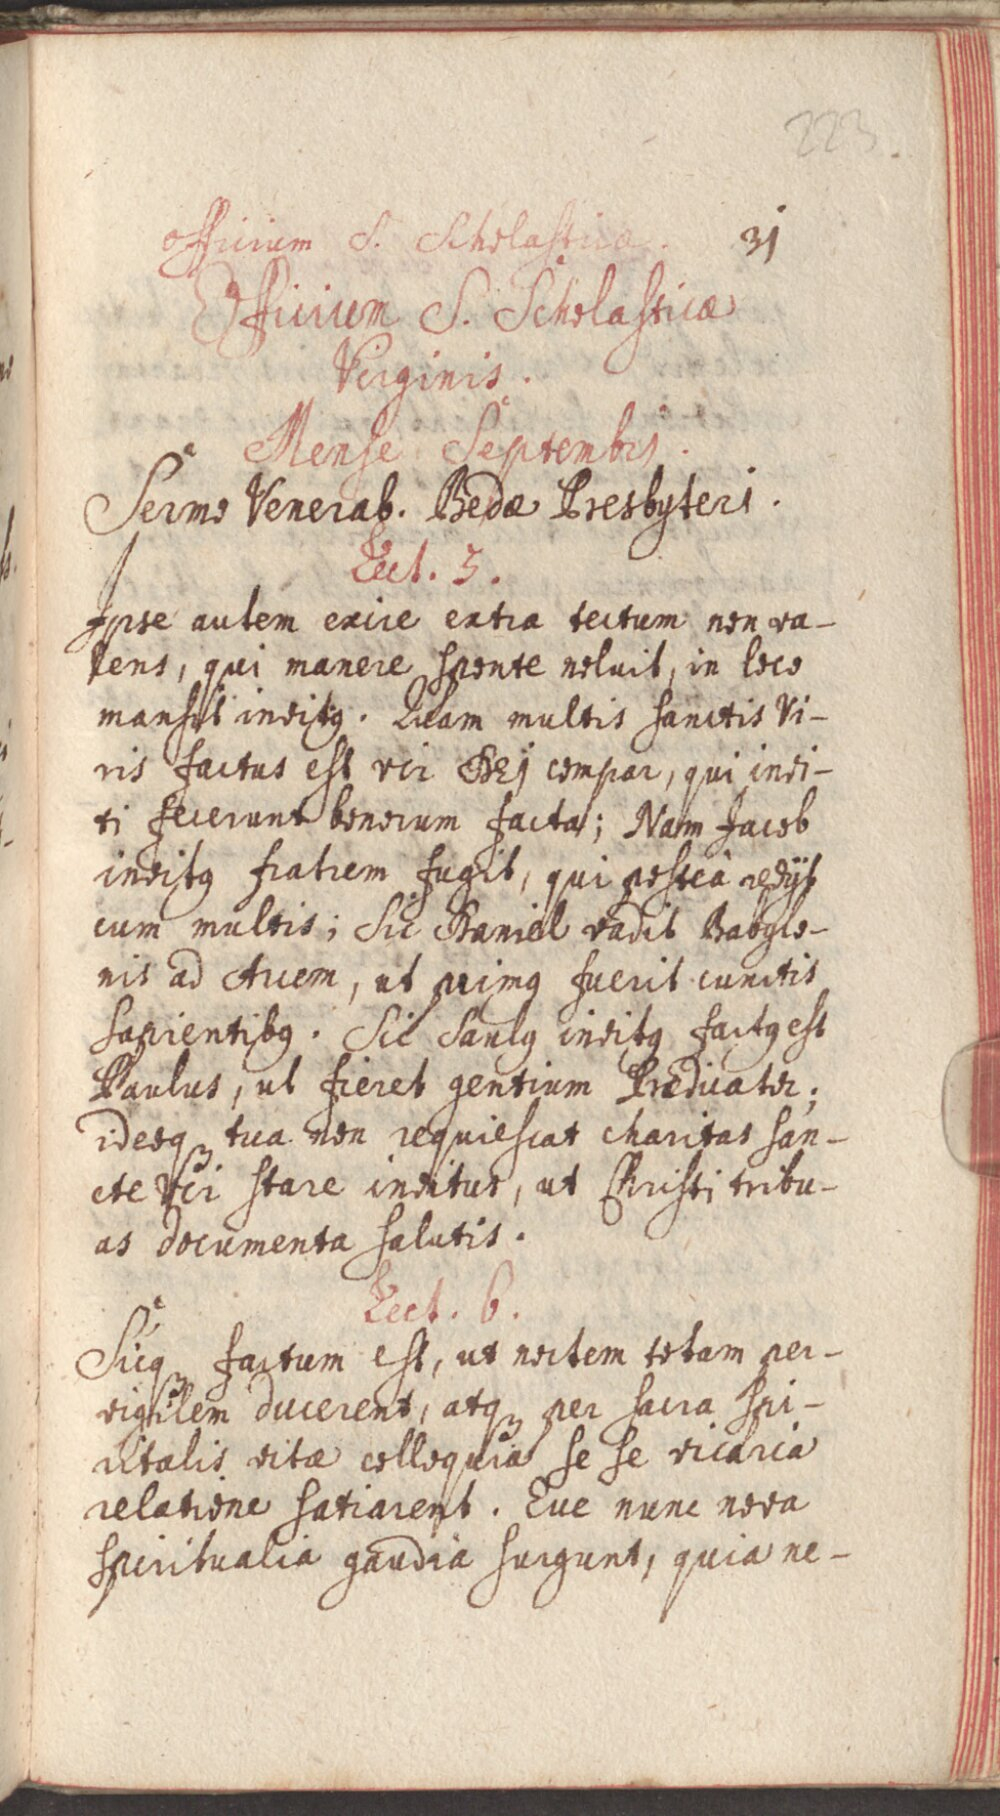 223.
Officium S. Scholasticæ. 31
Officium S. Scholasticæ
Virginis.
Mense Septembris.
Sermo Venerab. Bedæ Presbyteri.
Lect. 5.
Ipse autem exire extra tectum non va-
lens, qui manere sponte noluit, in loco
mansit invitꝰ. Quam multis sanctis Vi-
ris factus est vir Dej compar, qui invi-
ti fecerunt bonorum facta; Nam Jacob
invitꝰ fratrem fugit, qui posteà redijt
cum multis; Sic Daniel vadit Babylo-
nis ad Arcem, ut primꝰ fuerit cunctis
sapientibꝰ. Sic Saulꝰ invitꝰ factꝰ est
Paulus, ut fieret gentium Prædicator;
ideoqꝫ tua non requiescat charitas san-
cte Vir stare invitus, ut Christi tribu-
as documenta salutis.
Lect. 6.
Sicqꝫ factum est, ut noctem totam per-
vigilem ducerent, atqꝫ per sacra spi-
ritalis vitæ colloquia se se vicaria
relatione satiarent. Ecce nunc nova
spiritualia gaudia surgunt, quia ne-